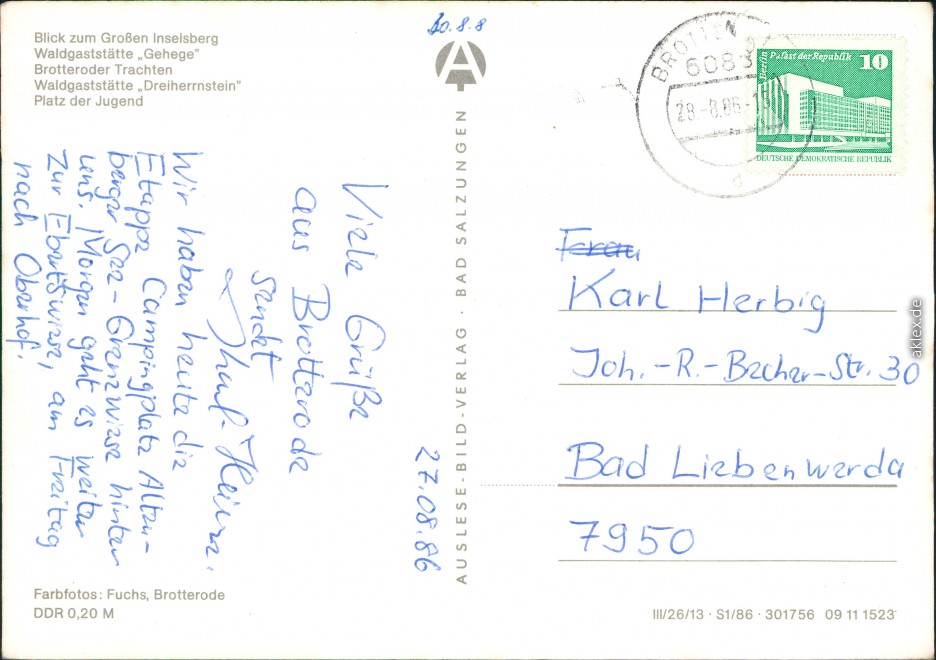 30.8.8
Blick zum Großen Inselsberg
Waldgaststätte „Gehege"
Brotteroder Trachten
Waldgaststätte „Dreiherrnstein"
Platz der Jugend
AUSLESE-BILD-VERLAG · BAD SALZUNGEN
BROTTEROD
6083
28.-8.86-10
d
Berlin Palast der Republik 10
DEUTSCHE DEMOKRATISCHE REPUBLIK
27.08.86
Viele Grüße
aus Brotterode
sendet
Heinz.
Wir haben heute die
Etappe Campingplatz Alten-
berger See - Grenzwiese hinter
uns. Morgen geht es weiter
zur Ebertswiese, am Freitag
nach Oberhof.
Frau
Karl Herbig
Joh.-R.-Becher-Str. 30
Bad Liebenwerda
7950
Farbfotos: Fuchs, Brotterode
DDR 0,20 M
III/26/13 · S1/86 · 301756 09 11 1523
aklex.de